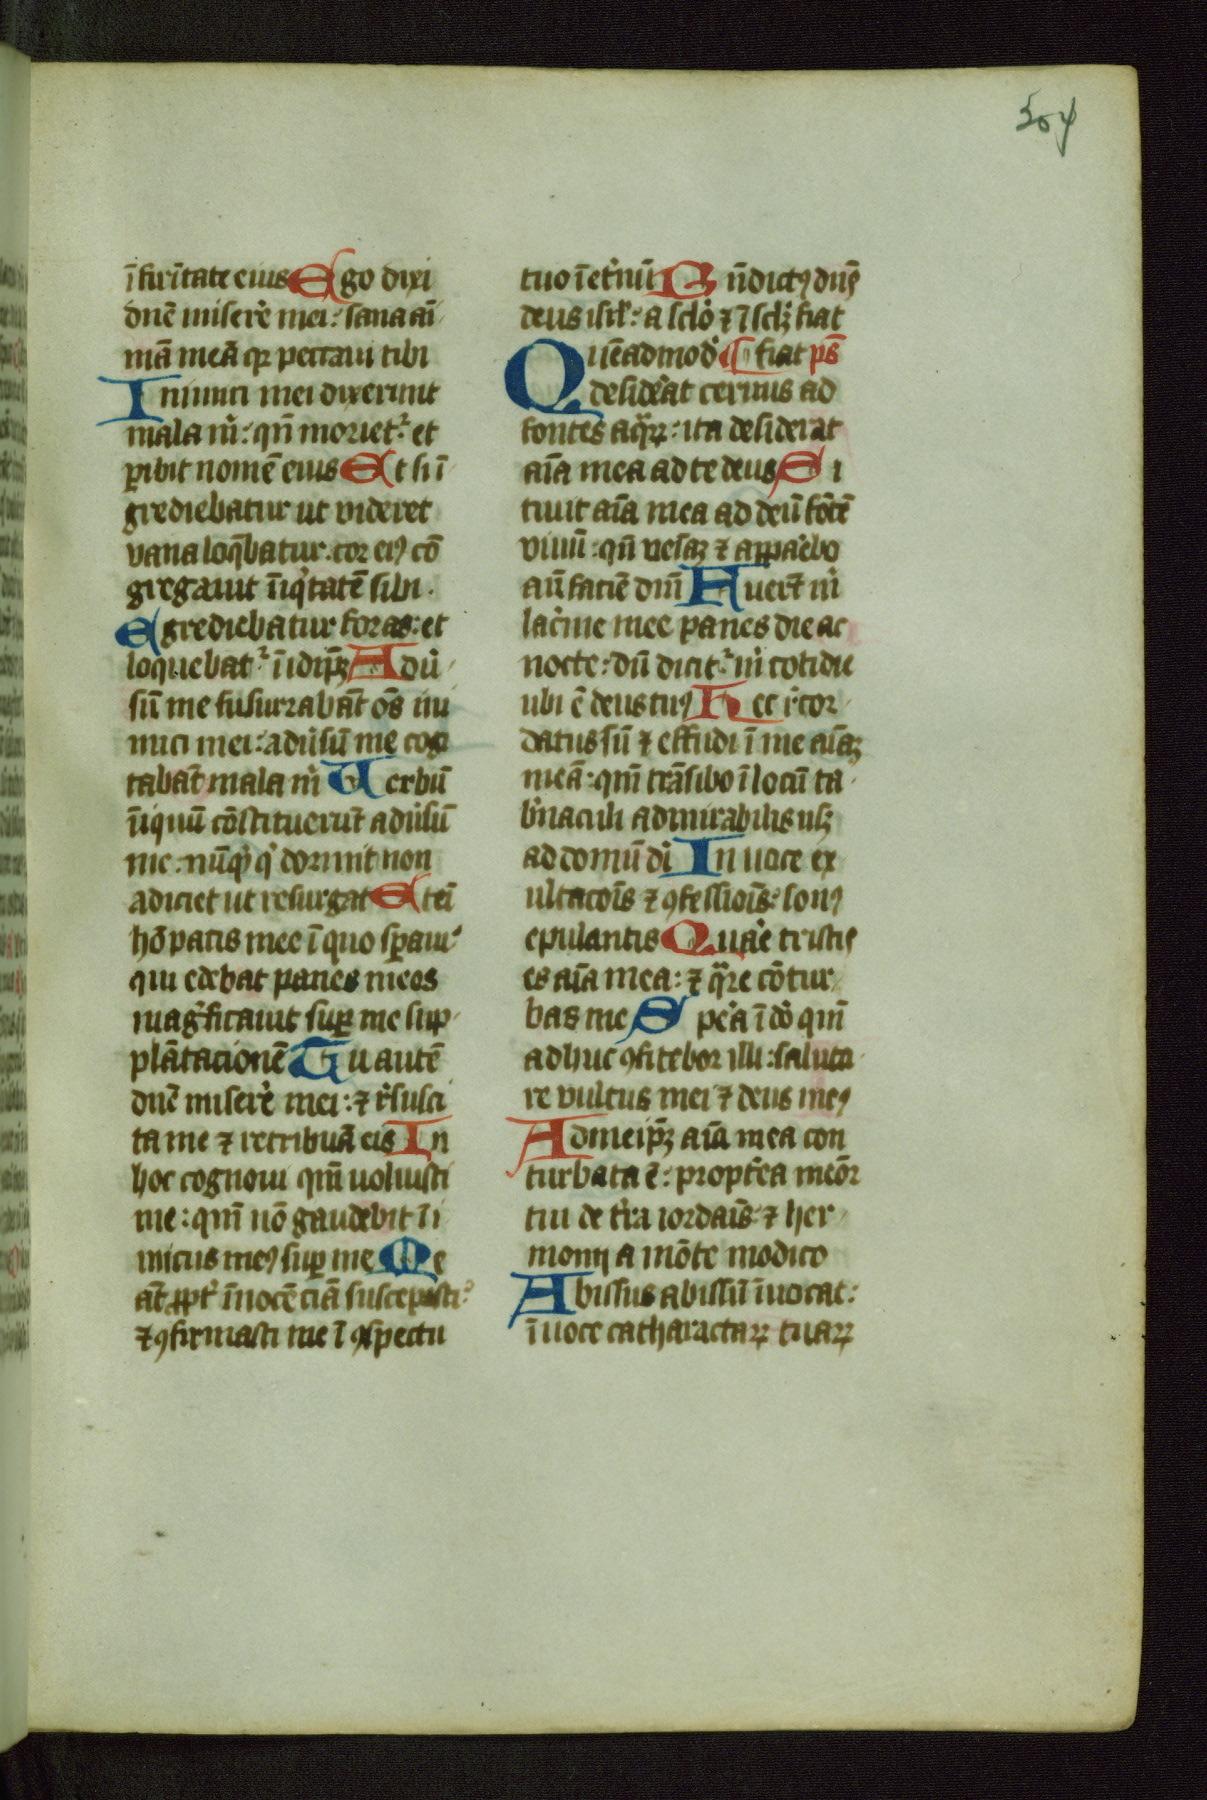 504
īfirm̄tate eius Ego dixi
dnē miserẻ mei: sana ai᷑
mā meā qꝛ peccaui tibi
Inimici mei dixerunt
mala m̓: qn̄ moriet᷑ et
ꝑibit nomē eius Et si ī
grediebatur ut videret
vana loq̄batur. cor eiꝰ cō
gregauit īiq̓tatē sibi.
Egrediebatur foras: et
loquebat᷑ ī idip̄ꝫ Adu᷑
sū me susurrabāt oēs ini
mici mei: adu᷑sū me cogi
tabāt mala m̓ Uerbū
īiquū cōstituerūt adu᷑sū
me: nūqͥd q̓ dormit non
adiciet ut resurgat Eteī
hō pacis mee ī quo sꝑaui
qui edebat panes meos
mag̓ficauit suꝑ me sup
plātacionē Tu autē
dnē miserẻ mei: ⁊ r̓susci
ta me ⁊ retribuā eis In
hoc cognoui qm̄ uoluisti
me: qm̄ nō gaudebit īi
micus meꝰ suꝑ me Me
āt ꝓpt̓ īnocēciā suscepisti:
⁊ ꝯfirmasti me ī ꝯspectu
tuo ī et̓nū Bn̄dictꝰ dn̄s
deus isrl̓: a sclo̓ ⁊ ī sclꝫ̓ fiat
Quēadmodū ¶ fiat ps̄
desidēat ceruus ad
fontes aqᷓꝝ: ita desiderat
aīa mea ad te deus Si
tiuit aīa mea ad deū fōtē
viuū: qn̄ veiā ⁊ appaēbo
an̄ faciē dn̄i Fuer̄t m̓
lac̓me mee panes die ac
nocte: dū dicit᷑ m̓ cotidie
ubi ē deus tuꝰ Hec r̓cor
datus sū ⁊ effudi ī me aīaꝫ
meā: qm̄ trāsibo ī locū ta
b̓naculi admirabilis usqꝫ
ad domū di̓ In uoce ex
ultacōis ⁊ ꝯfessiōis: sonꝰ
epulantis Quaẻ tristis
es aīa mea: ⁊ qᷓre cōtur
bas me Speᷓa ī dō qm̄
adhuc ꝯfitebor illi: saluta
re vultus mei ⁊ deus meꝰ
Ad meip̄ꝫ aīa mea con
turbata ē: propt̓ea meōr
tui de t̓ra iordāis ⁊ her
monij a mōte modico
Abissus abissū īuocat:
ī uoce catharactaꝝ tuaꝝ